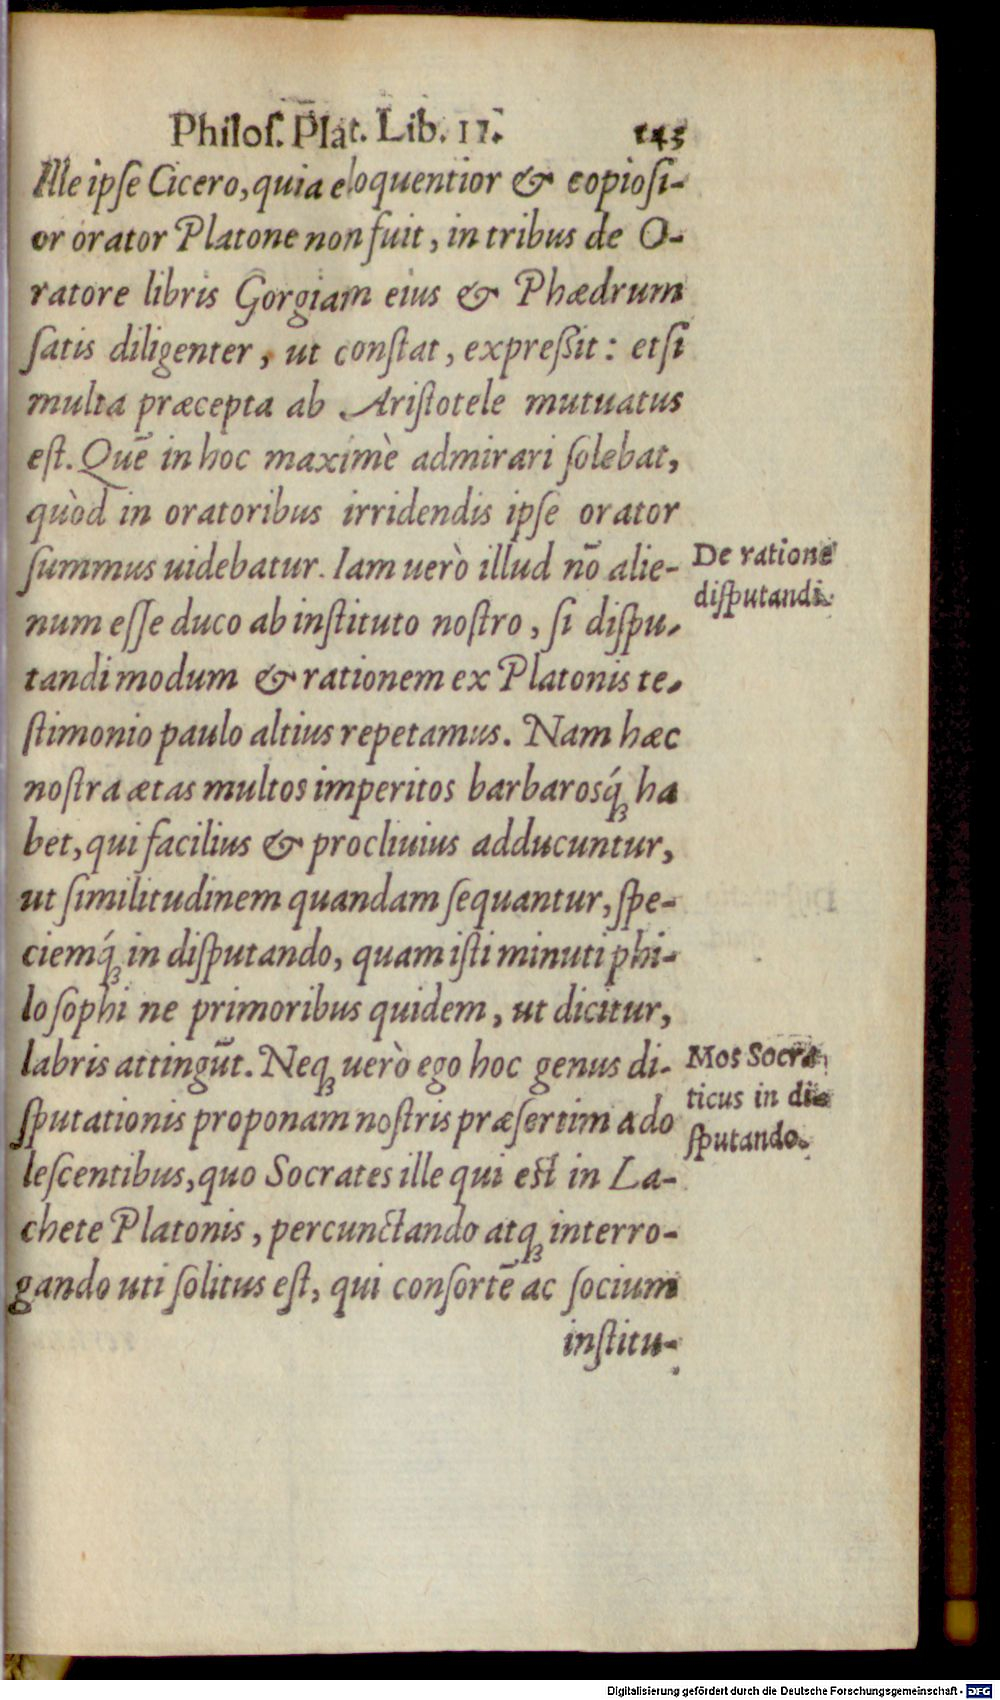 Philoſ. Plat. Lib. II. 143
Ille ipſe Cicero, quia eloquentior & copioſi-
or orator Platone non fuit, in tribus de O-
ratore libris Gorgiam eius & Phædrum
ſatis diligenter, ut conſtat, expreßit: etſi
multa præcepta ab Ariſtotele mutuatus
eſt. Quẽ in hoc maximè admirari ſolebat,
quòd in oratoribus irridendis ipſe orator
ſummus uidebatur. Iam uerò illud nõ alie-
De ratione
diſputandi.
num eſſe duco ab inſtituto noſtro, ſi diſpu-
tandi modum & rationem ex Platonis te-
ſtimonio paulo altius repetamus. Nam hæc
noſtra ætas multos imperitos barbarosq́ꝫ ha
bet, qui facilius & procliuius adducuntur,
ut ſimilitudinem quandam ſequantur, ſpe-
ciemq́ꝫ in diſputando, quam iſti minuti phi-
loſophi ne primoribus quidem, ut dicitur,
labris attingũt. Neqꝫ uerò ego hoc genus di-
Mos Socra
ticus in di-
ſputando.
ſputationis proponam noſtris præſertim ado
leſcentibus, quo Socrates ille qui eſt in La-
chete Platonis, percunctando atqꝫ interro-
gando uti ſolitus eſt, qui conſortẽ ac ſocium
inſtitu-
Digitalisierung gefördert durch die Deutsche Forschungsgemeinschaft - DFG